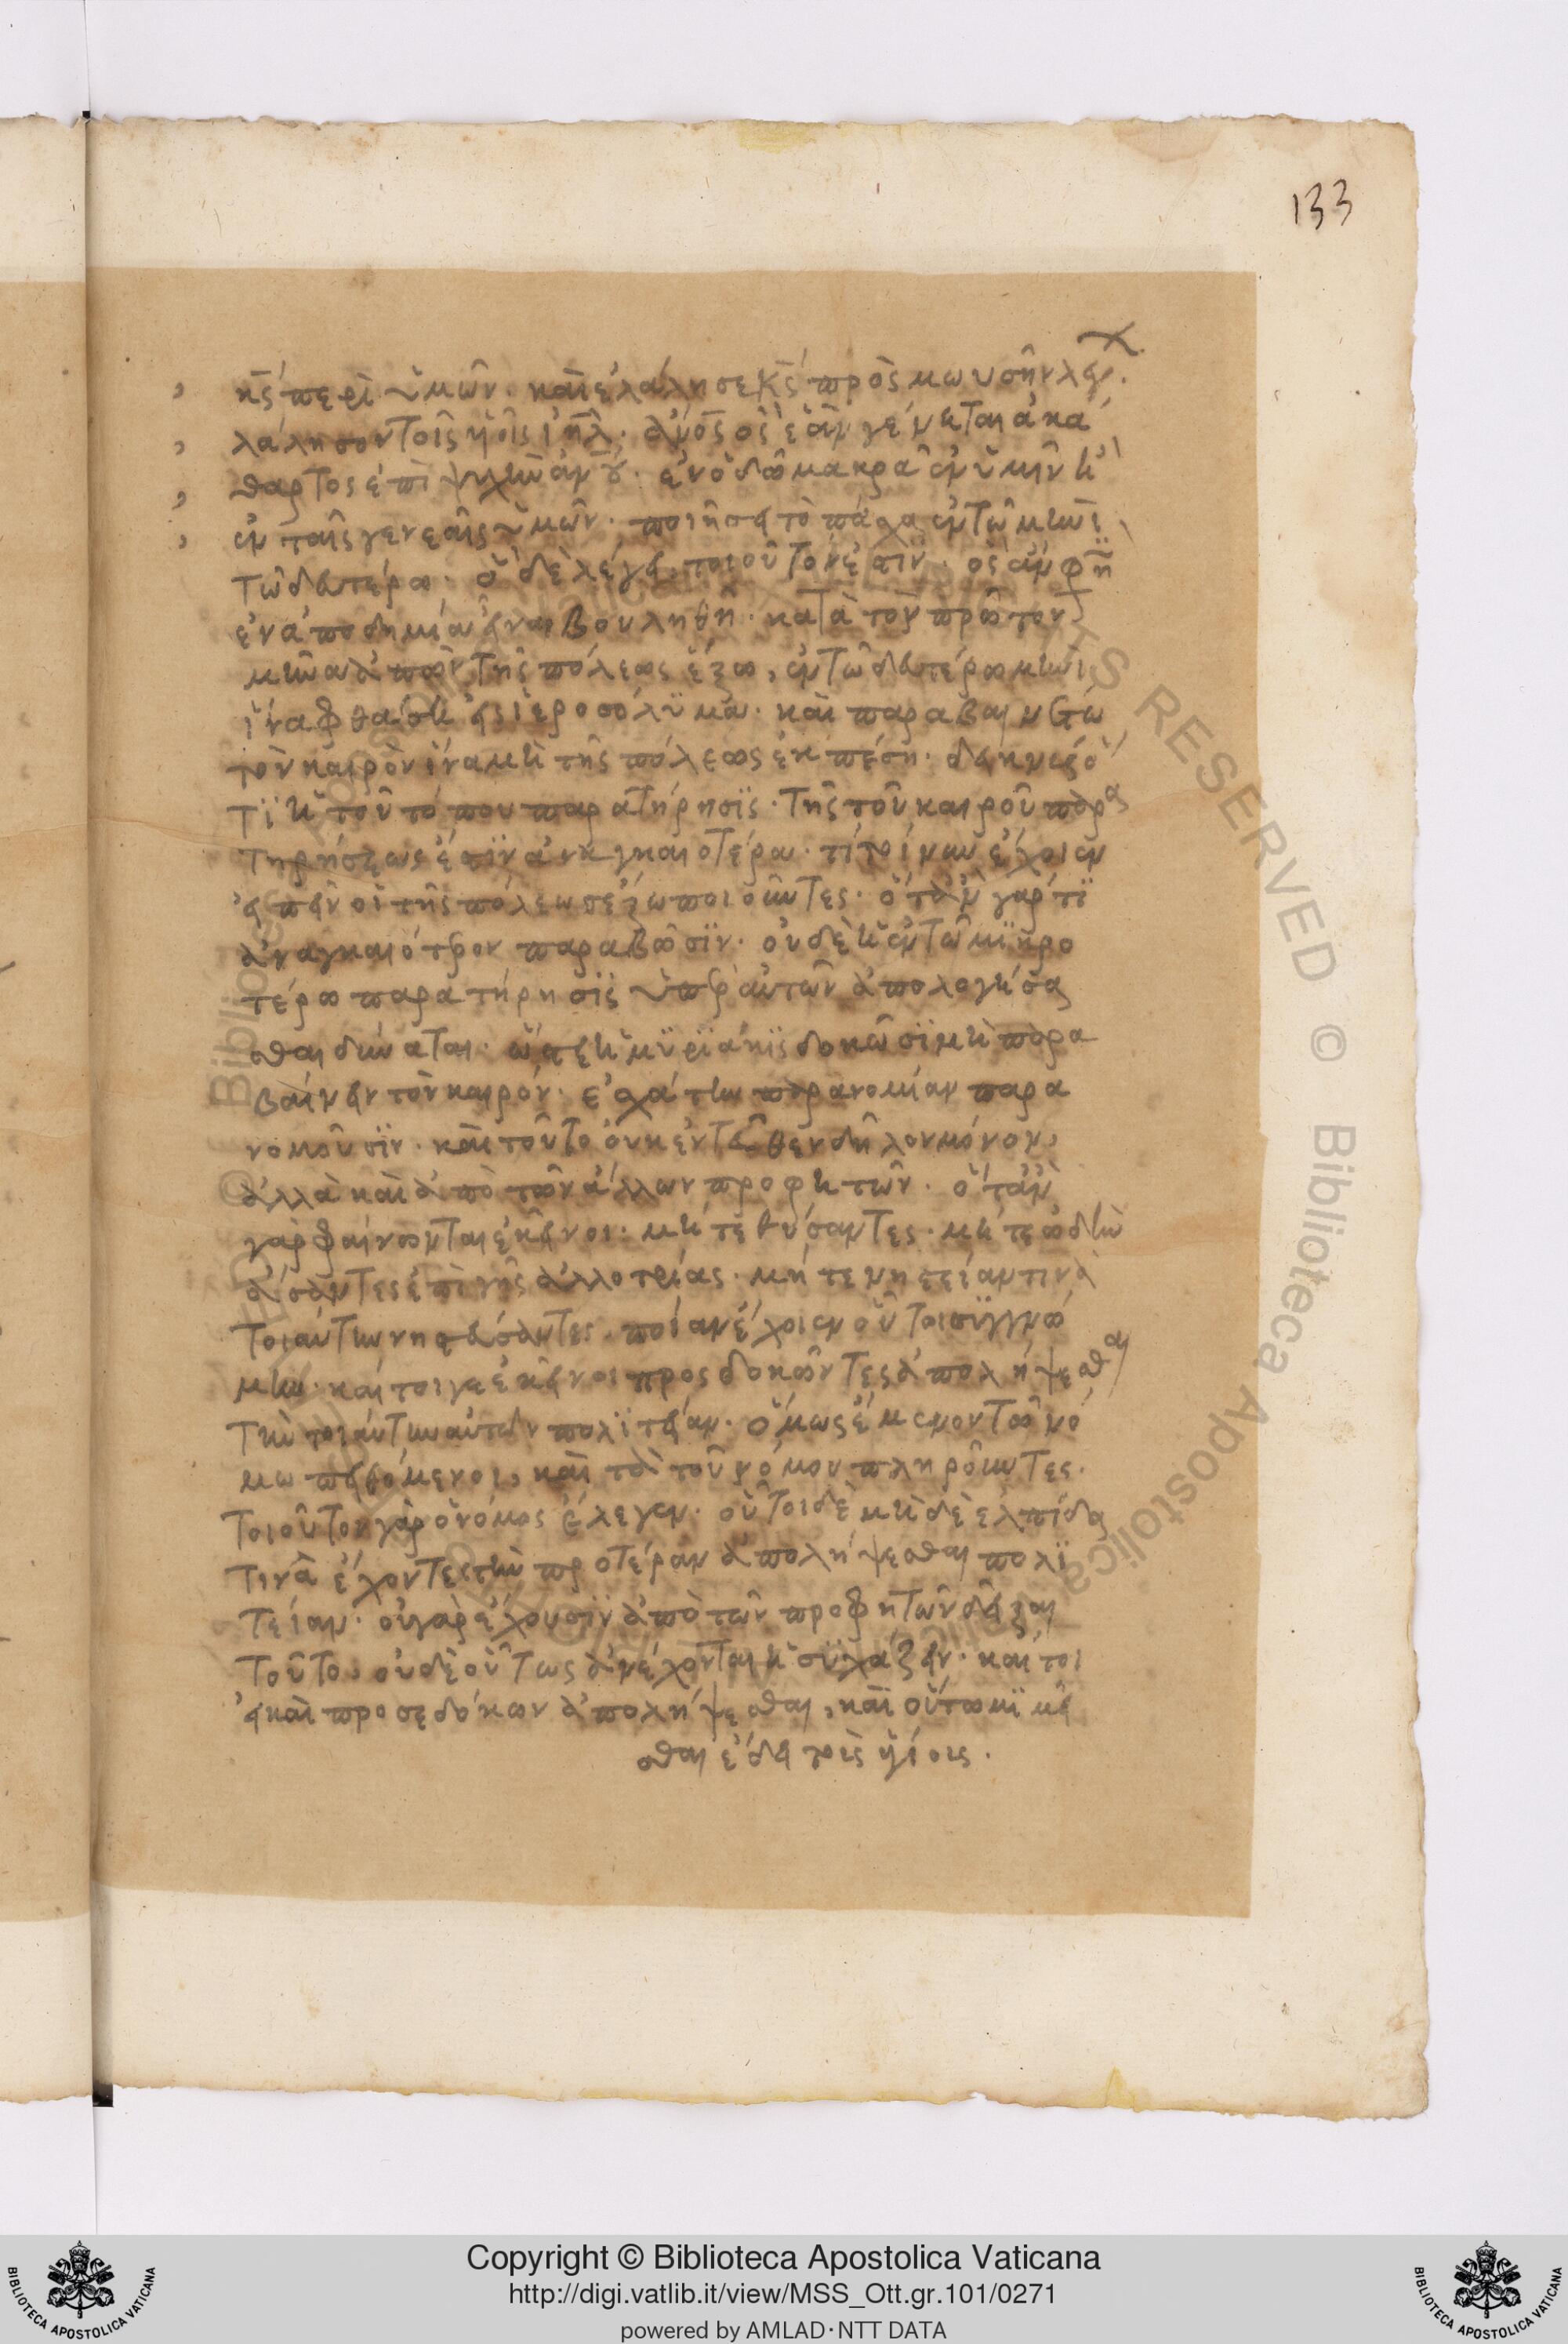 133
κ̅ς̅ περὶ ὑμῶν· καὶ ἐλάλησε κ̅ς̅ πρὸς μωυσῆν λέγ.
λάλησον τοῖς υἱοῖς ἰη̅λ̅· ἄν̅ο̅ς̅ ὃς ἐὰν γένηται ἀκά
θαρτος ἐπὶ ψυχῆ ἀν̅ο̅υ̅· ἐν ὁδῶ μακρᾶ ἐν ὑμῖν ἢ
ἐν ταῖς γενεαῖς ὑμῶν· ποιήσει τὸ πάσχα ἐν τῶ μηνὶ
τῶ δευτέρω· ὃ δὲ λέγει, τοιοῦτόν ἐστιν· ὃς ἂν φη̅
ἐν ἀποδημία εἶναι βουληθῆ· κατὰ τὸν πρῶτον
μῆνα ἀπὼν τῆς πόλεως ἔξω, ἐν τῶ δευτέρω μηνὶ
ἵνα φθάση εἰς ἱεροσόλυμα· καὶ παραβαινέτω
τὸν καιρὸν ἵνα μὴ τῆς πόλεως ἐκπέση· δεικνὺς ὅ
τι ἡ τοῦ τόπου παρατήρησις· τῆς τοῦ καιροῦ παρα
τηρήσεως ἐστὶν ἀναγκαιοτέρα· τί τοίνυν ἔχοιεν
εἰπεῖν οἱ τῆς πόλεως ἔξω ποιοῦντες· ὅταν γάρ τι
ἀναγκαιότερον παραβῶσιν· οὐδὲ ἡ ἐν τῶ μικρο
τέρω παρατήρησις ὑπὲρ αὐτῶν ἀπολογήσα
σθαι δύναται· ὥστε ἢ μυριάκις δοκῶσι μὴ παρα
βαίνειν τὸν καιρόν· ἐσχάτην παρανομίαν παρα
νομοῦσιν· καὶ τοῦτο οὐκ ἐντεῦθεν δῆλον μόνον,
ἀλλὰ καὶ ἀπὸ τῶν ἄλλων προφητῶν· ὅταν
γὰρ φαίνωνται ἐκεῖνοι· μήτε θύσαντες· μήτε ὠδὴν
ἄσαντες ἐπὶ γῆς ἀλλοτρίας· μήτε νηστείαν τινὰ
τοιαύτην νηστεύσαντες· ποίαν ἔχοιεν οὗτοι συγγνώ
μην· καί τοιγε ἐκεῖνοι προσδοκῶντες ἀπολήψεσθαι
τὴν τοιαύτην αὐτῶν πολιτείαν· ὅμως ἔμενον τῶ νό
μω πειθόμενοι, καὶ τὰ τοῦ νόμου πληροῦντες·
τοιοῦτον γὰρ ὁ νόμος ἔλεγεν· οὗτοι δὲ μὴ δὲ ἐλπίδα
τινὰ ἔχοντες τὴν προτέραν ἀπολήψεσθαι πολι
τείαν· οὐ γὰρ ἔχουσιν ἀπὸ τῶν προφητῶν δεῖξαι
τοῦτο, οὐδὲ οὕτως ἀνέχονται ἡσυχάζειν· καί τοι
εἰ καὶ προσεδόκων ἀπολήψεσθαι, καὶ οὕτω μι μεῖ
σθαι ἔδει τοὺς ἁγίους.
Copyright © Biblioteca Apostolica Vaticana
http://digi.vatlib.it/view/MSS_Ott.gr.101/0271
powered by AMLAD·NTT DATA